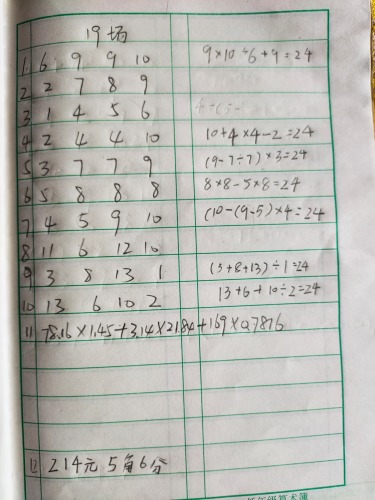 19场
1 6 9 9 10 9×10÷6+9=24
2 2 7 8 9
3 1 4 5 6
4 2 4 4 10 10+4×4-2=24
5 3 7 7 9 (9-7÷7)×3=24
6 5 8 8 8 8×8-5×8=24
7 4 5 9 10 (10-(9-5)×4=24
8 11 6 12 10
9 3 8 13 1 (3+8+13)÷1=24
10 13 6 10 2 13+6+10÷2=24
11 78.16×1.45+3.14×21.84+169×0.7816
12 214元5角6分